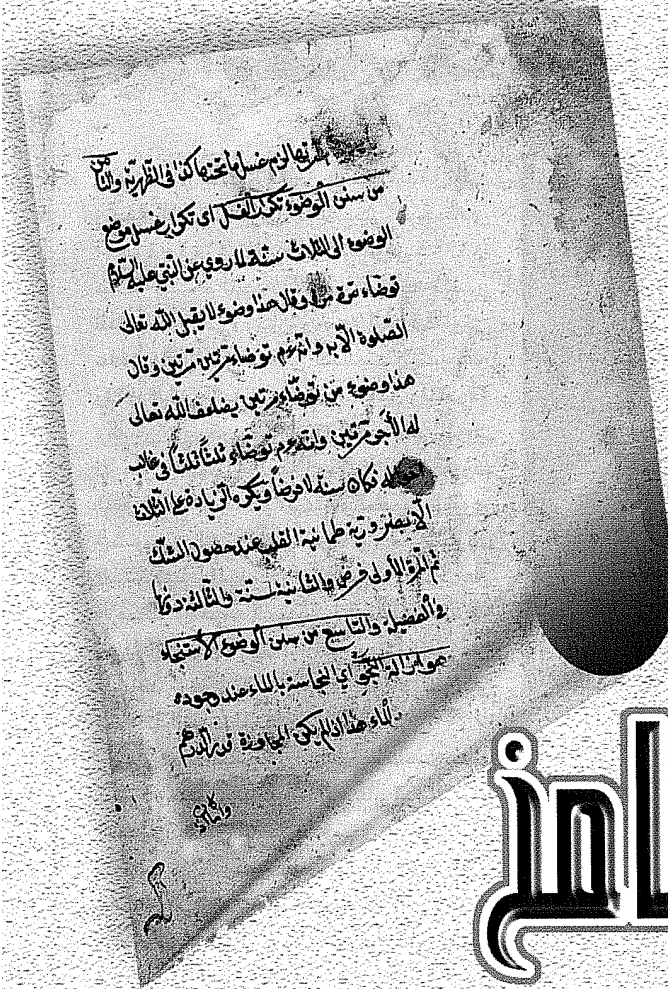 لزم غسل ما تحتها كذا فى الظهرية والثامن
من سنن الوضوء تكرار الغسل اى تكرار غسل موضع
الوضوء الى الثلاث سنة لما روي عن النبي عليه السلام
توضاء مرة مرة وقال هذا وضوء لا يقبل الله تعالى
الصلوة الا به وانه عم توضاء مرتين مرتين وقال
هذا وضوء من توضاء مرتين يضاعف الله تعالى
له الأجر مرتين وانه عم توضاء ثلثاً ثلثاً فى غالب
فكان سنة لا فرضاً ويكره الزيادة على الثلاث
الا لضرورة طمانية القلب عند حصول الشك
ثم المرة الأولى فرض والثانية سنة والثالثة دونها
فى الفضيلة والتاسع من سنن الوضوء الاستنجاء
هو ازالة النجو اي النجاسة بالماء عند وجوده
الماء هذا اذا لم يكن المجاوزة قدر الدرهم